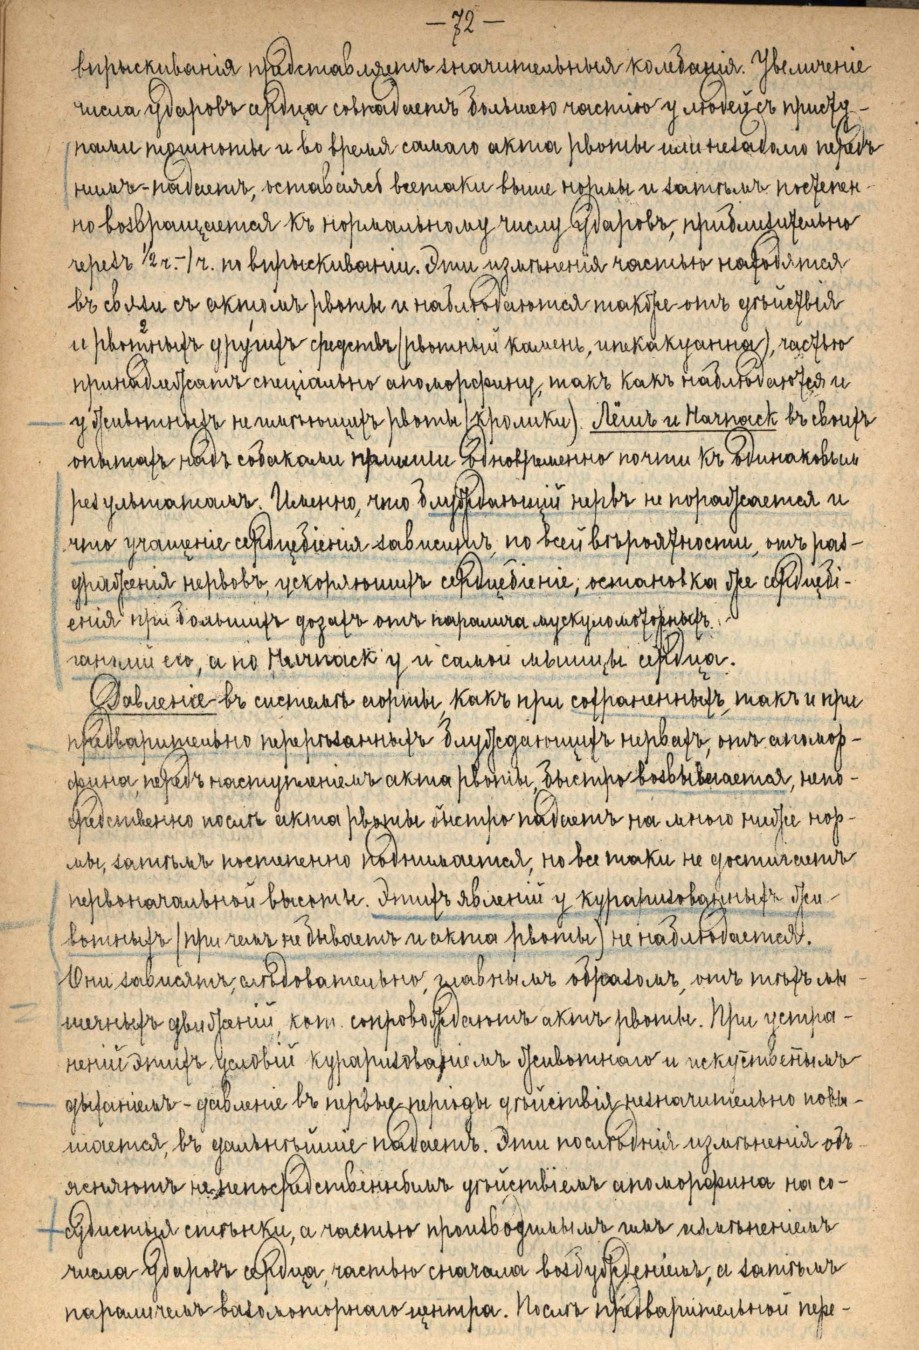 — 72 —
впрыскиванія представляетъ значительныя колебанія. Увеличеніе
числа ударовъ сердца совпадаетъ большею частію у людей съ присту-
пами тошноты и во время самаго акта рвоты или незадолго передъ
нимъ - падаетъ, оставаясь всетаки выше нормы и затѣмъ постепен-
но возвращается къ нормальному числу ударовъ, приблизительно
черезъ 1/2 ч. - 1 ч. по впрыскиваніи. Эти измѣненія частью находятся
въ связи съ актомъ рвоты и наблюдаются также отъ дѣйствія
и рвотныхъ другихъ средствъ (рвотный камень, ипекакуанна), частью
принадлежатъ спеціально апоморфину, такъ какъ наблюдаются и
у животныхъ неимѣющихъ рвоты (кролики). Лёшъ и Harnack въ своихъ
опытахъ надъ собаками пришли одновременно почти къ одинаковымъ
результатамъ. Именно, что блуждающій нервъ не поражается и
что учащеніе сердцебіенія зависитъ, по всей вѣроятности, отъ раз-
драженія нервовъ, ускоряющихъ сердцебіеніе; остановка же сердцебі-
енія при большихъ дозахъ отъ паралича мускуломоторныхъ
гангліи его, а по Harnack'у и самой мышцы сердца.
Давленіе въ системѣ аорты, какъ при сохраненныхъ, такъ и при
предварительно перерѣзанныхъ блуждающихъ нервахъ, отъ апомор-
фина, передъ наступленіемъ акта рвоты, быстро возвышается, непо-
средственно послѣ акта рвоты быстро падаетъ на много ниже нор-
мы, затѣмъ постепенно поднимается, но все таки не достигаетъ
первоначальной высоты. Этихъ явленій у кураризованныхъ жи-
вотныхъ (при чемъ не бываетъ и акта рвоты) не наблюдается.
Они зависятъ, слѣдовательно, главнымъ образомъ, отъ тѣхъ мы-
шечныхъ движеній, кот. сопровождаютъ актъ рвоты. При устра-
неніи этихъ условій кураризованіемъ животнаго и искуственымъ
дыханіемъ - давленіе въ первые періоды дѣйствія незначительно повы-
шается, въ дальнѣйшіе падаетъ. Эти послѣднія измѣненія объ-
ясняютъ не непосредственнымъ дѣйствіемъ апоморфина на со-
судистыя стѣнки, а частью производимымъ имъ измѣненіемъ
числа ударовъ сердца, частью сначала возбужденіемъ, а затѣмъ
параличемъ вазомоторнаго центра. Послѣ предварительной пере-